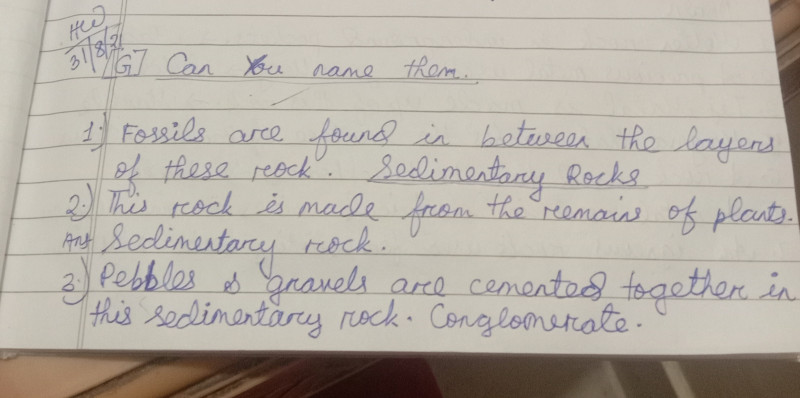 HW
31/8/21
[G] Can You name them.
1.) Fossils are found in between the layers
of these rock. Sedimentary Rocks
2.) This rock is made from the remains of plants.
Ans Sedimentary rock.
3.) Pebbles & gravels are cemented together in
this sedimentary rock. Conglomerate.